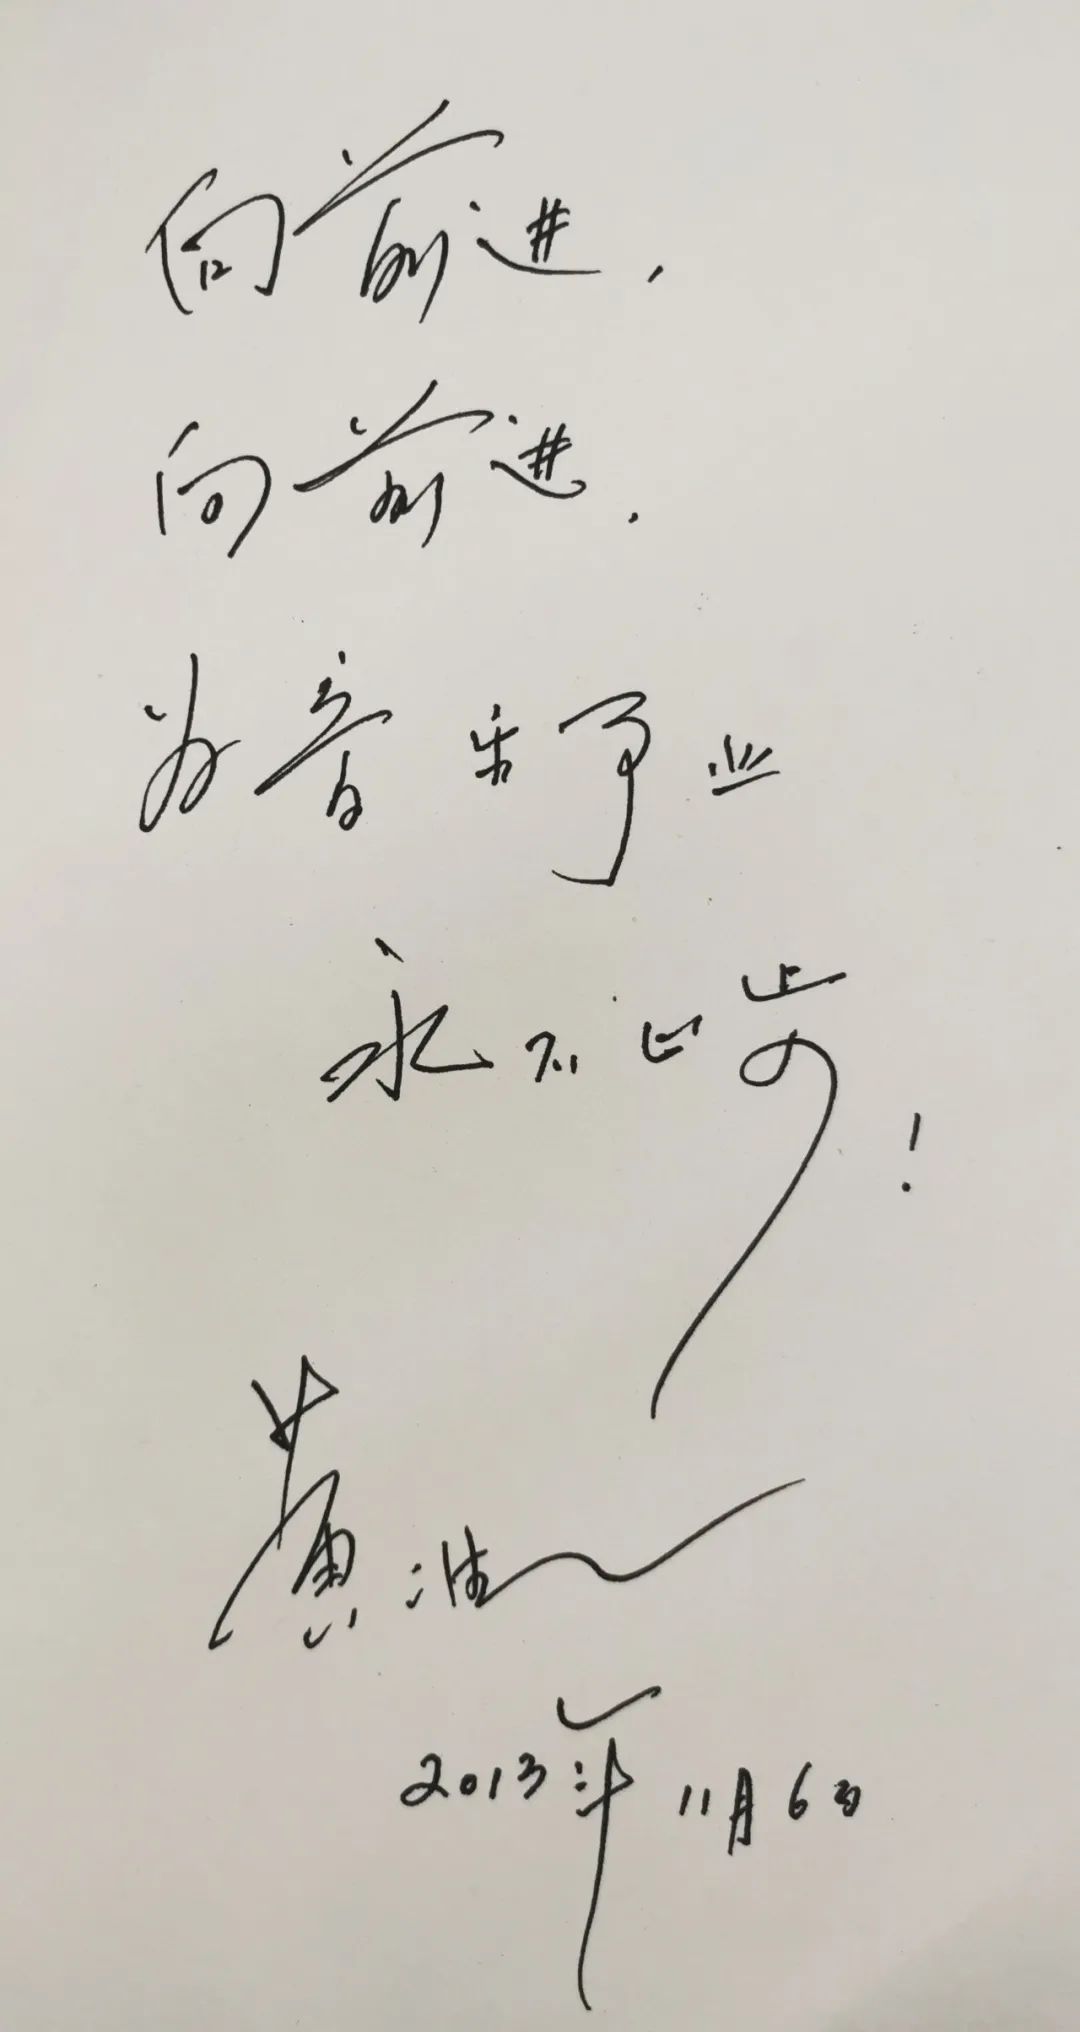 向前进，
向前进，
为音乐事业
永不止步！
黄准
2013年11月6日